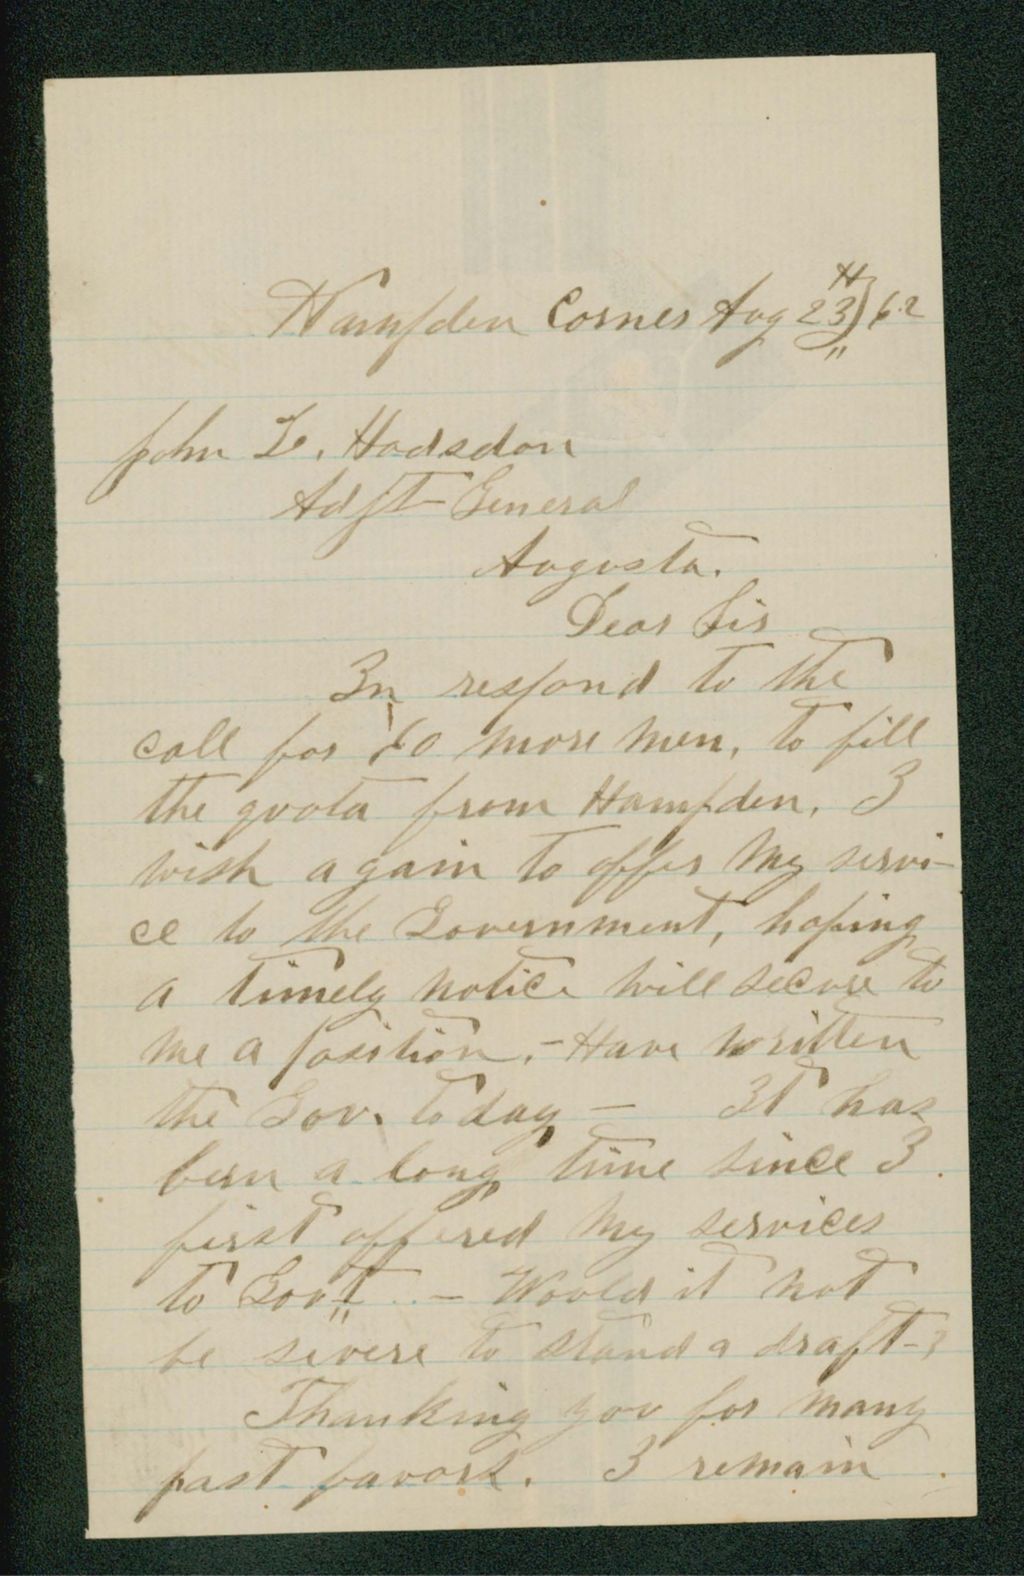 Hampden Corner Aug 23 / 62
John L. Hodsdon
Adjt General
Augusta.
Dear Sir
In respond to the
call for more men, to fill
the quota from Hampden, I
wish again to offer my servi-
ce to the Government, hoping
a timely notice will secure to
me a position, - Have written
the Gov. today - It has
been a long time since I
first offered my services
to Govt. - Would it not
be severe to stand a draft - ?
Thanking you for many
past favors. I remain